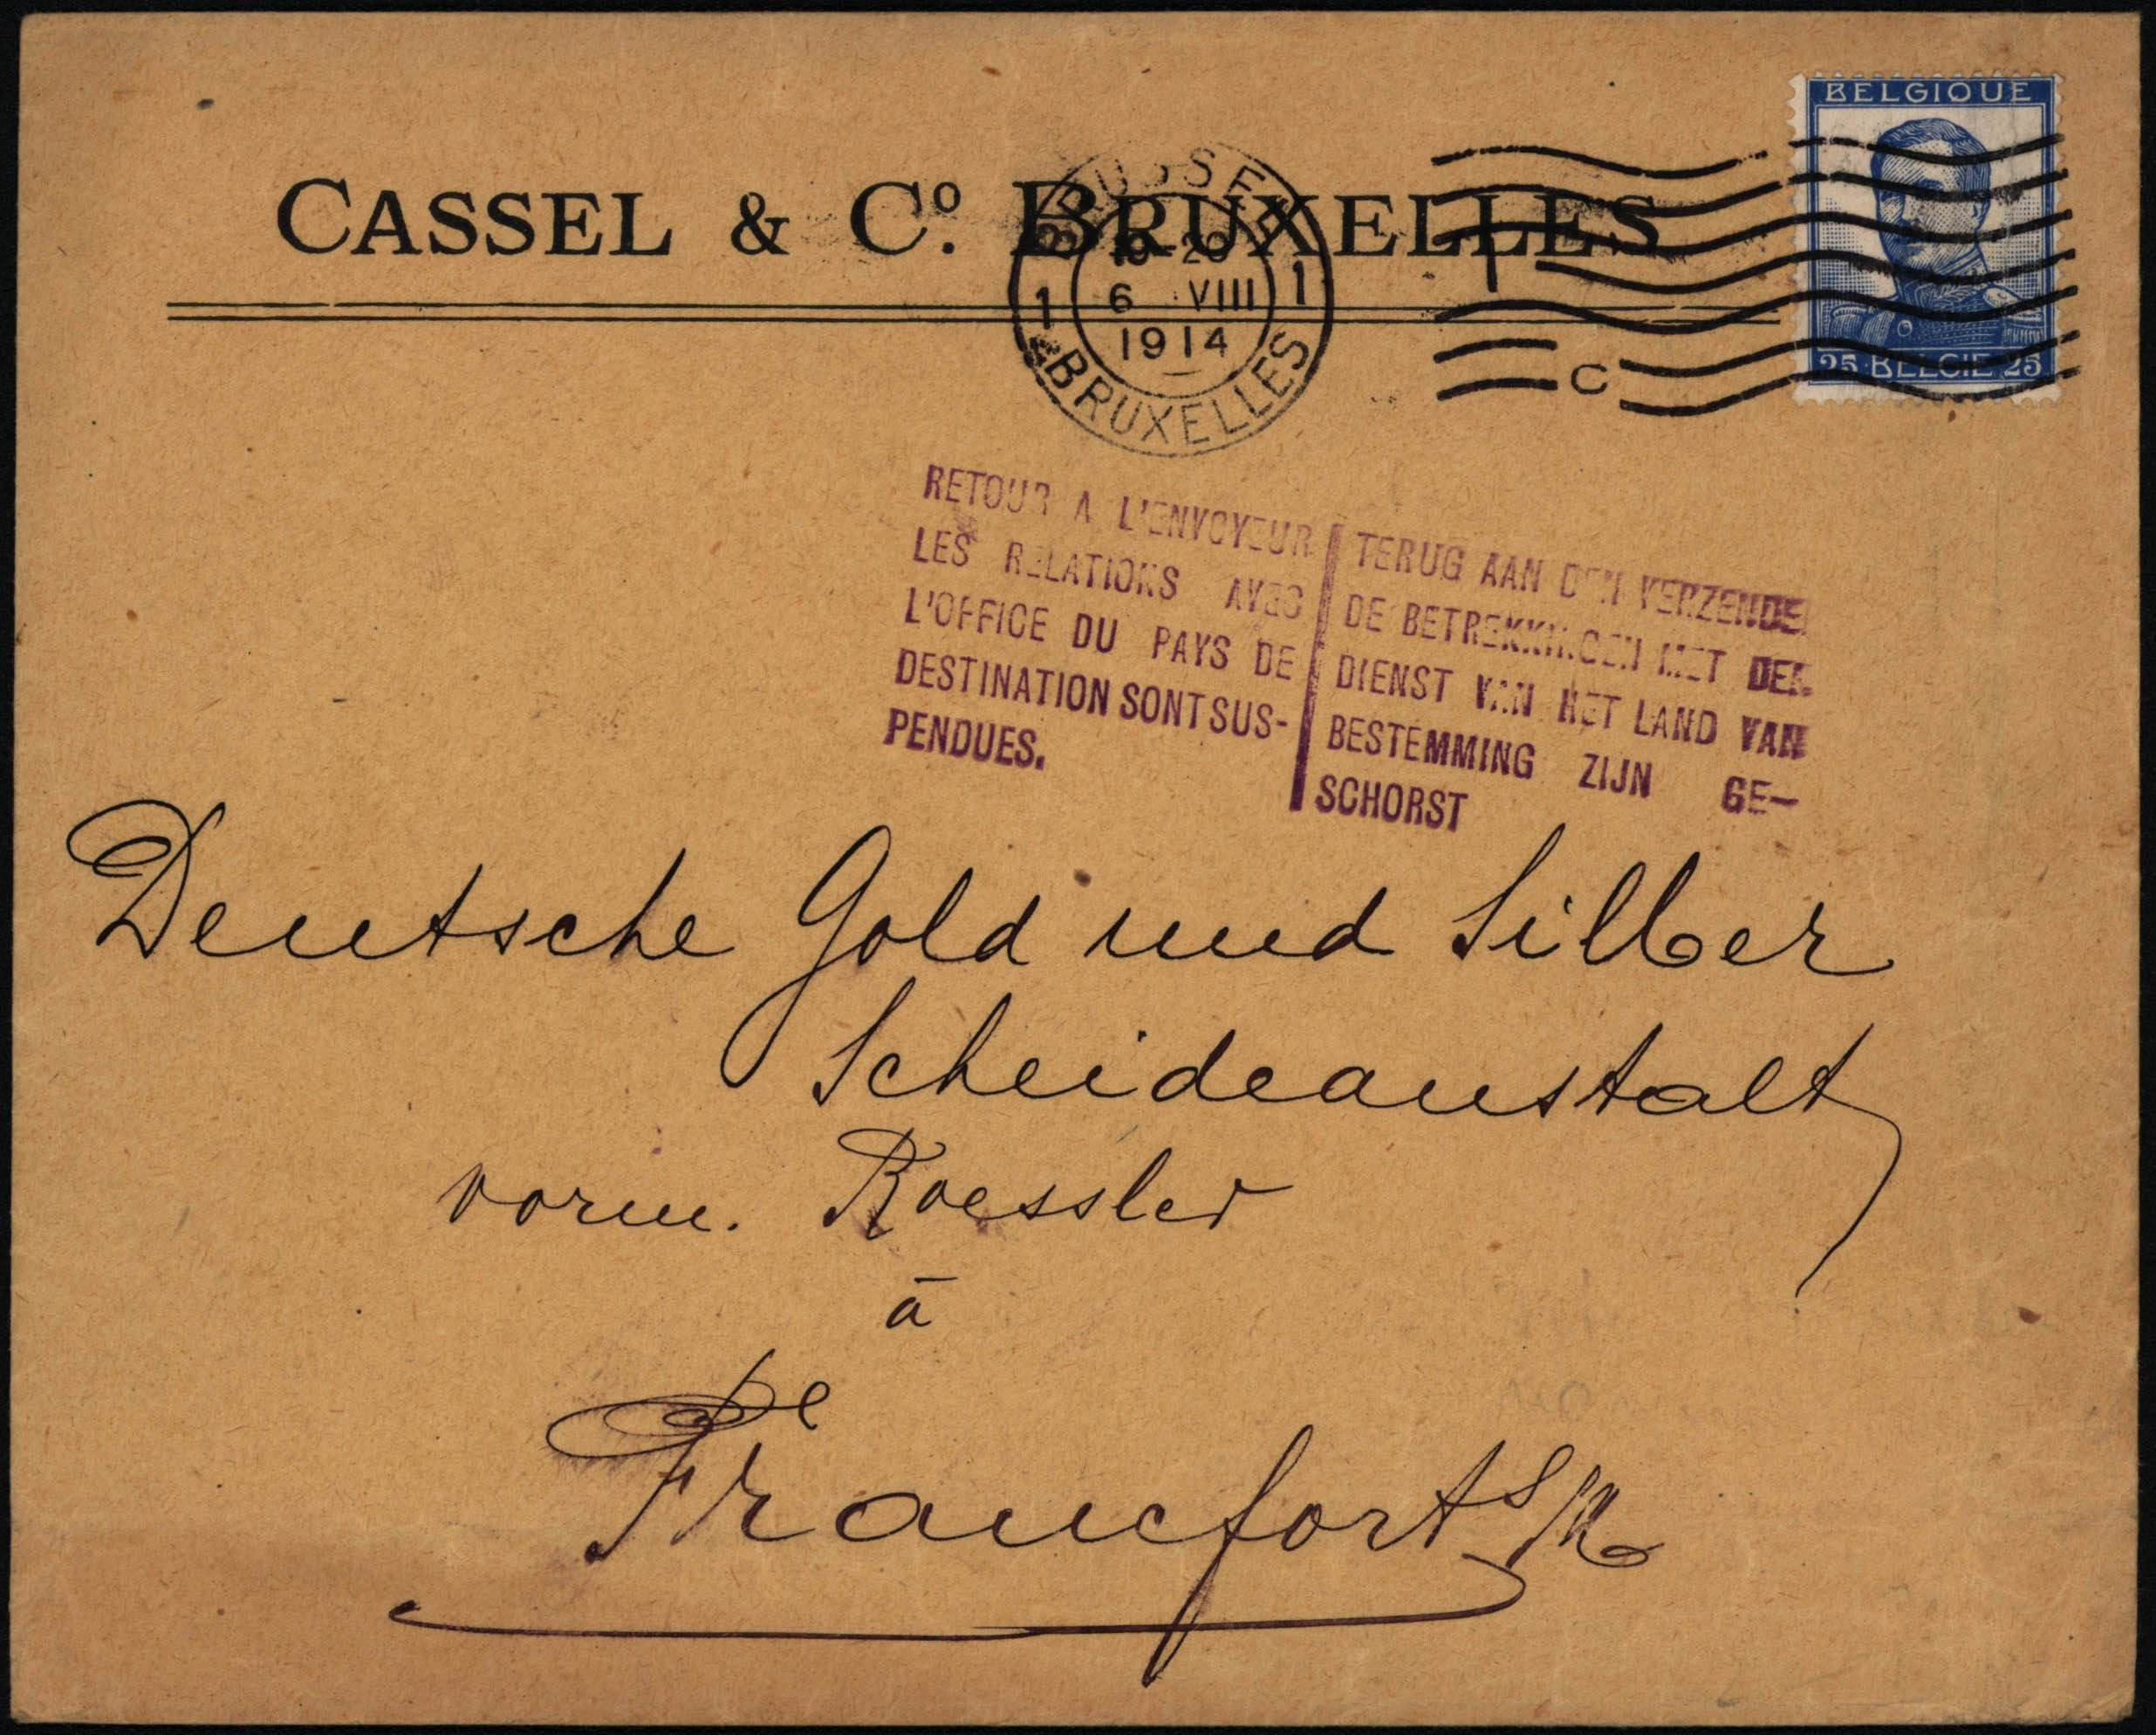 BELGIQUE
CASSEL & Cº. BRUXELLES
BRUSSEL
19-20
1 6 VIII 1
1914
BRUXELLES
C
25 BELGIË 25
RETOUR A L'ENVOYEUR
LES RELATIONS AVEC
L'OFFICE DU PAYS DE
DESTINATION SONT SUS-
PENDUES.
TERUG AAN DEN VERZENDER
DE BETREKKINGEN MET DEN
DIENST VAN HET LAND VAN
BESTEMMING ZIJN GE-
SCHORST
Deutsche Gold und Silber
Scheideanstalt
vorm. Roessler
à
Francfort s/M